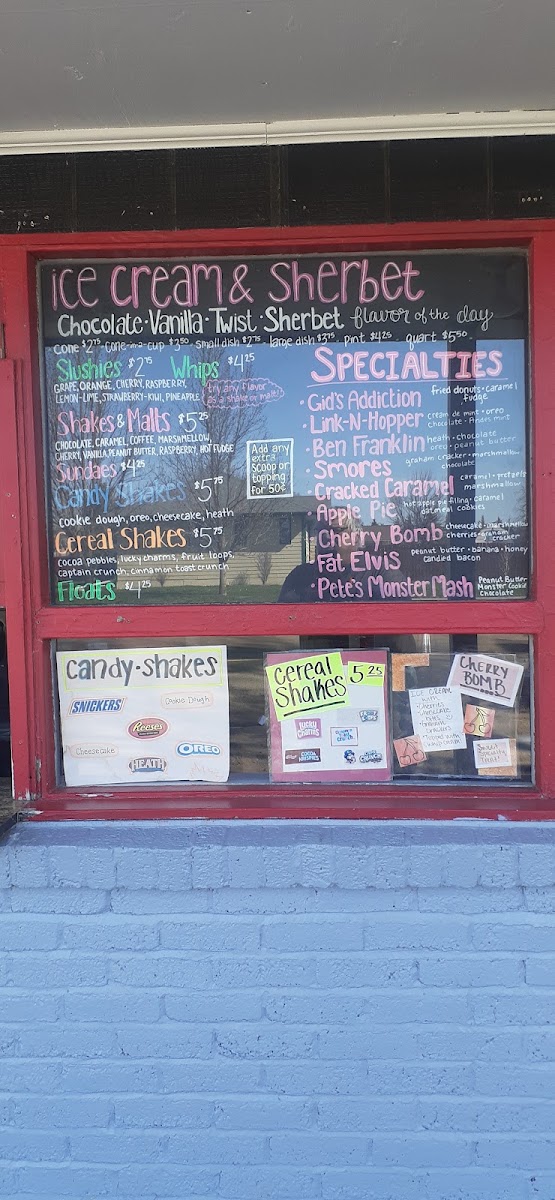 ice cream & sherbet
Chocolate · Vanilla · Twist · Sherbet flavor of the day
cone $2.75 cone-in-a-cup $3.50 small dish $2.75 large dish $3.75 pint $4.25 quart $5.50
Slushies $2.75 Whips $4.25
GRAPE, ORANGE, CHERRY, RASPBERRY,
LEMON-LIME, STRAWBERRY-KIWI, PINEAPPLE
try any flavor
as a shake or malt!
Shakes & Malts $5.25
CHOCOLATE, CARAMEL, COFFEE, MARSHMALLOW,
CHERRY, VANILLA, PEANUT BUTTER, RASPBERRY, HOT FUDGE
Sundaes $4.25
Add any
extra
scoop or
topping
for 50¢
Candy Shakes $5.75
cookie dough, oreo, cheesecake, heath
Cereal Shakes $5.75
cocoa pebbles, lucky charms, fruit loops,
captain crunch, cinnamon toast crunch
Floats $4.25
SPECIALTIES
· Gid's Addiction fried donuts · caramel
fudge
· Link-N-Hopper creme de mint · oreo
chocolate · Andes mint
· Ben Franklin heath · chocolate
oreo · peanut butter
· Smores graham cracker · marshmallow
chocolate
· Cracked Caramel caramel · pretzels
marshmallow
· Apple Pie hot apple pie filling · caramel
oatmeal cookies
· Cherry Bomb cheesecake · marshmallow
cherries · graham
cracker
· Fat Elvis peanut butter · banana · honey
candied bacon
· Pete's Monster Mash Peanut Butter
Monster Cookie
Chocolate
candy · shakes
SNICKERS
Cookie Dough
Reese's
Cheesecake
OREO
HEATH
cereal
shakes 5.25
lucky
charms
CHERRY
BOMB
ICE CREAM
with
· Cherries